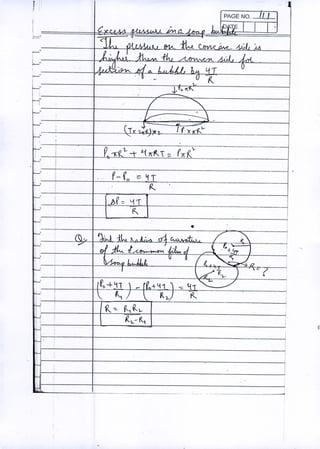 PAGE NO. 111
DATE
Excess pressure in a soap bubble
The pressure on the concave side is
higher then the convex side for
section of a bubble by 4T/R
↓P₀πR²
(T×2πR)×2 ↑P×πR²
P₀πR² + 4πRT = PπR²
P-P₀ = 4T/R
ΔP = 4T/R
Q. Find the radius of curvature
of the common film of
soap bubble
R₁
P₀+4T/R₁
R₂
R=?
(P₀+4T/R₁) - (P₀+4T/R₂) = 4T/R
R = R₁R₂/R₂-R₁